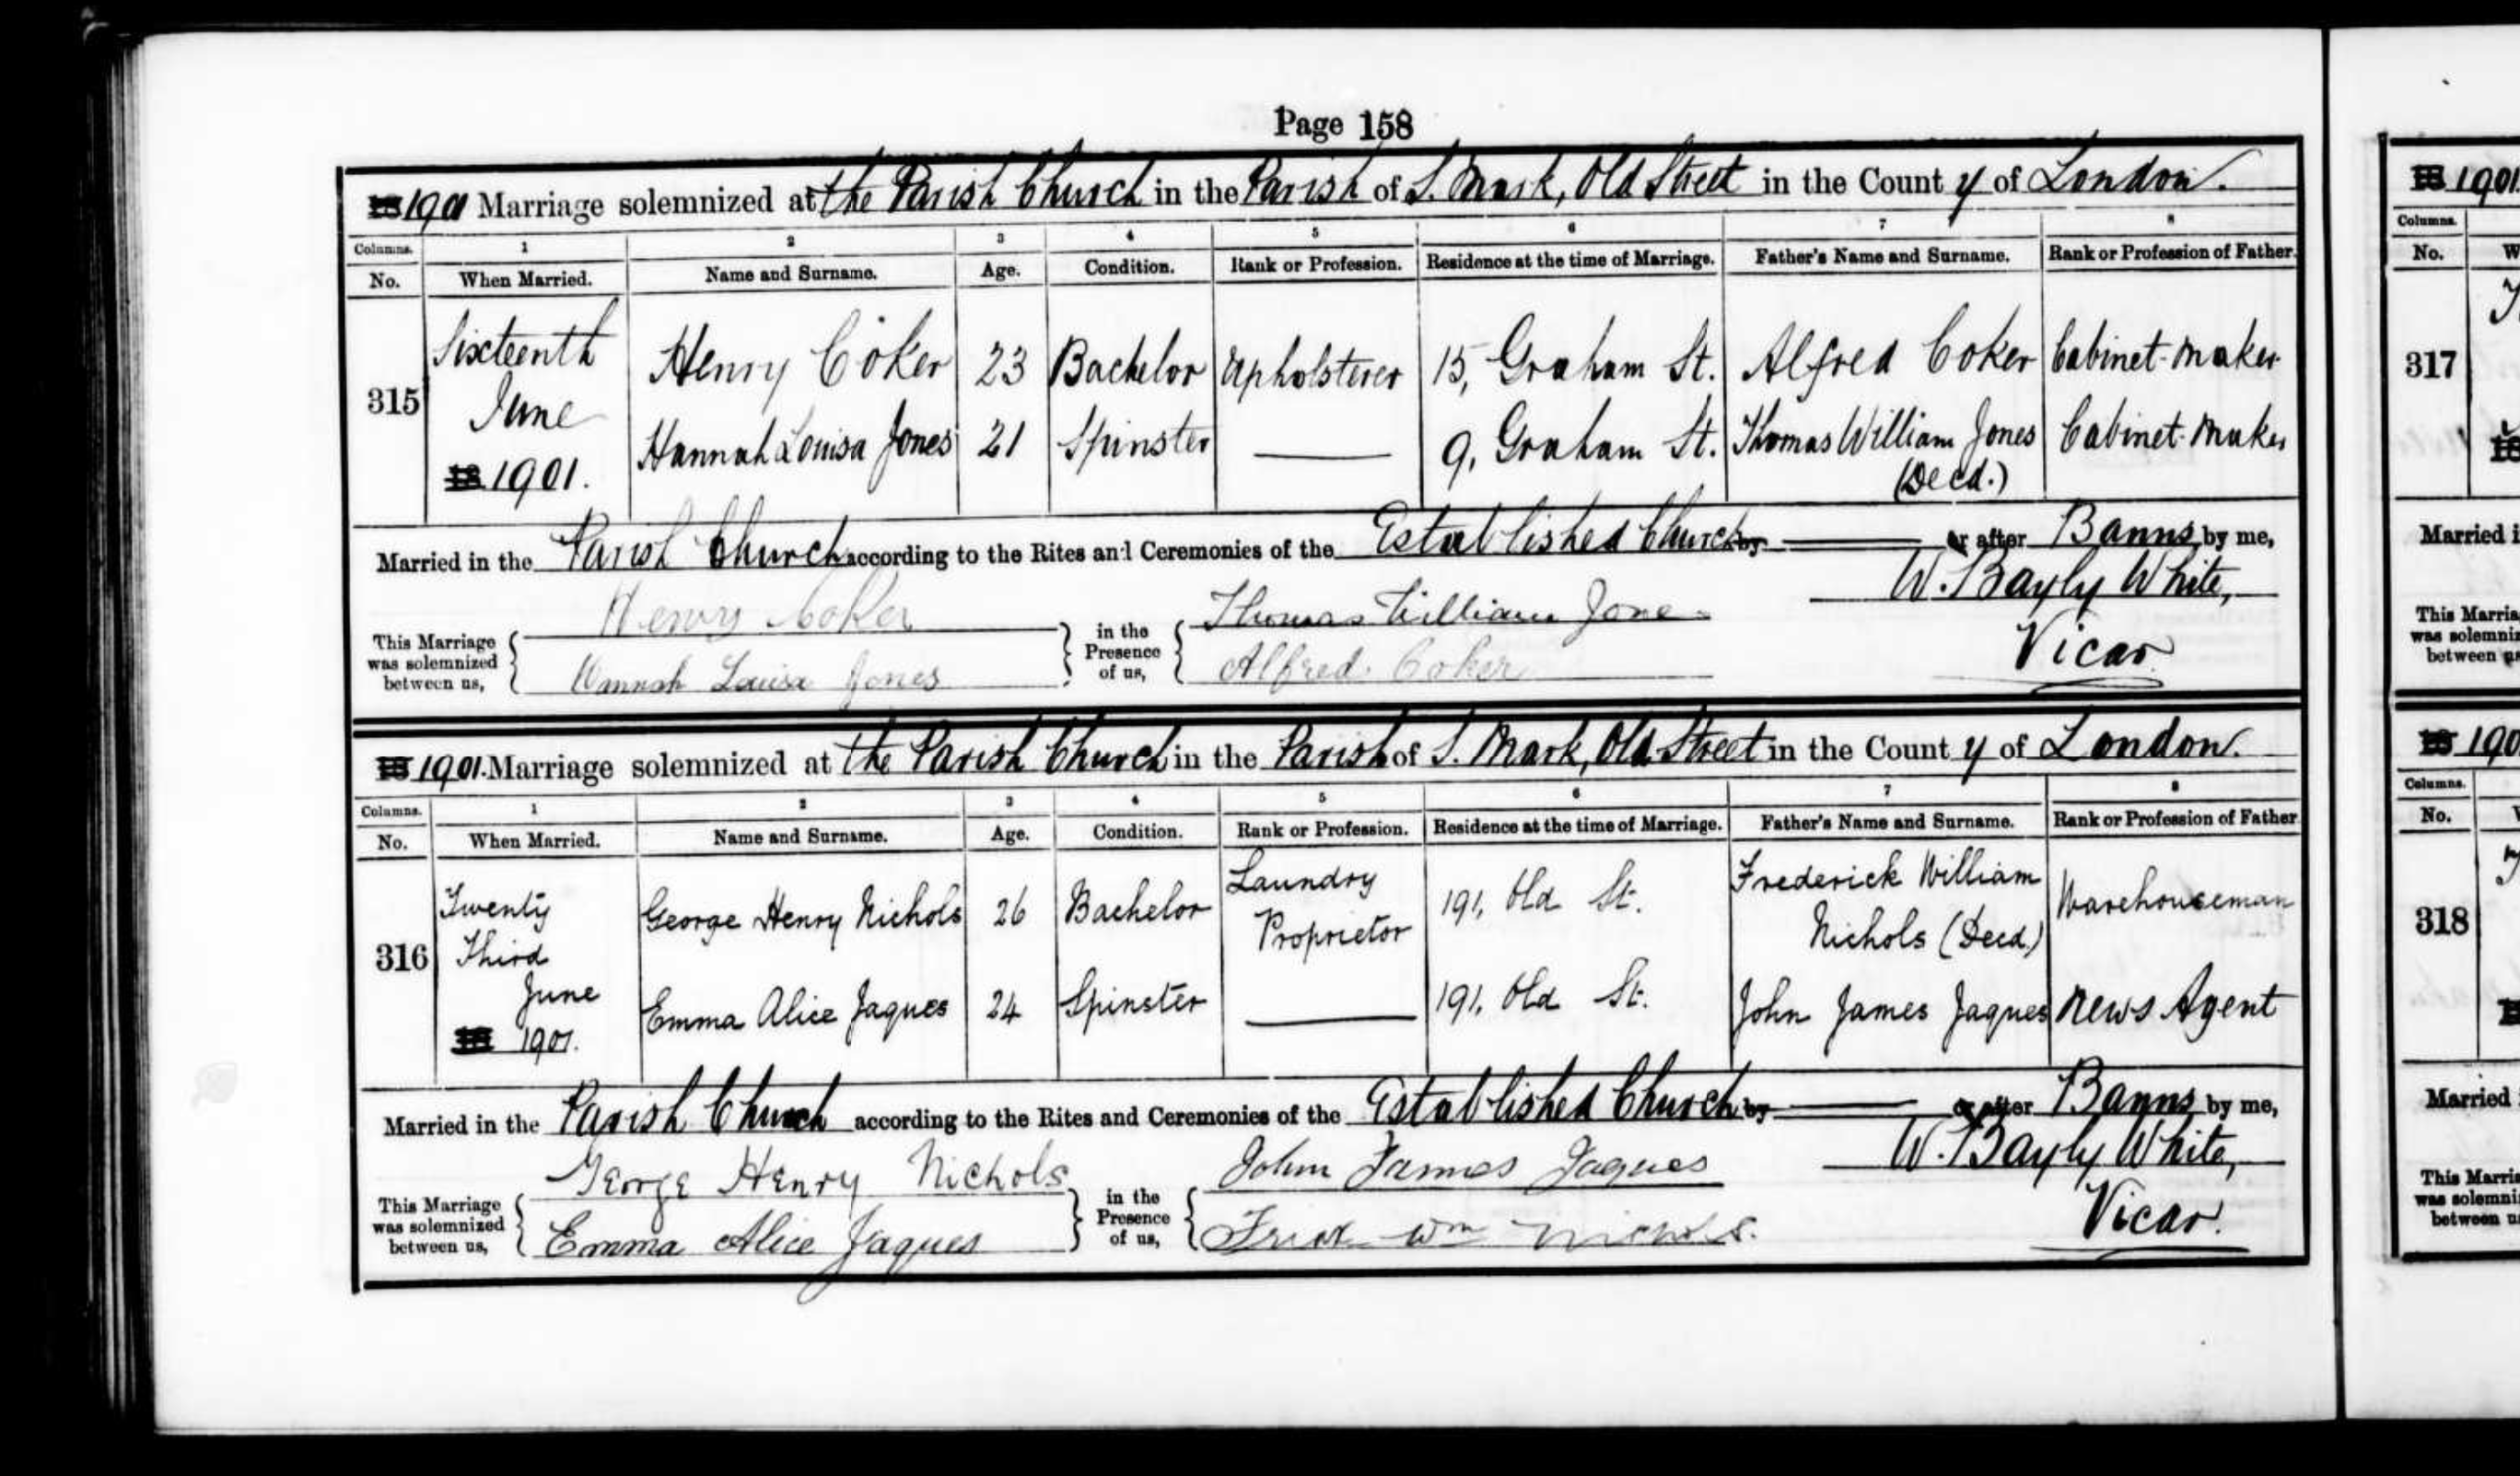 Page 158
18 1901 Marriage solemnized at the Parish Church in the Parish of S. Mark, Old Street in the County of London.
Columns. 1 2 3 4 5 6 7 8
No. When Married. Name and Surname. Age. Condition. Rank or Profession. Residence at the time of Marriage. Father's Name and Surname. Rank or Profession of Father.
315
Sixteenth June 18 1901.
Henry Coker 23 Bachelor Upholsterer 15, Graham St. Alfred Coker Cabinet-maker
Hannah Louisa Jones 21 Spinster 9, Graham St. Thomas William Jones (Decd.) Cabinet-maker
Married in the Parish Church according to the Rites and Ceremonies of the Established Church by or after Banns by me,
W. Bayly White,
Vicar
This Marriage was solemnized between us,
Henry Coker
Hannah Louisa Jones
in the Presence of us,
Thomas William Jones
Alfred Coker
18 1901. Marriage solemnized at the Parish Church in the Parish of S. Mark, Old Street in the County of London.
Columns. 1 2 3 4 5 6 7 8
No. When Married. Name and Surname. Age. Condition. Rank or Profession. Residence at the time of Marriage. Father's Name and Surname. Rank or Profession of Father
316
Twenty Third June 18 1901.
George Henry Nichols 26 Bachelor Laundry Proprietor 191, Old St. Frederick William Nichols (Decd.) Warehouseman
Emma Alice Jaques 24 Spinster 191, Old St. John James Jaques News Agent
Married in the Parish Church according to the Rites and Ceremonies of the Established Church by or after Banns by me,
W. Bayly White,
Vicar.
This Marriage was solemnized between us,
George Henry Nichols
Emma Alice Jaques
in the Presence of us,
John James Jaques
Fredk Wm Nichols.
18 1901
Columns.
No.
317
Married i
This Marria
was solemniz
between us
18 190
Columns.
No.
318
Married
This Marria
was solemni
between u